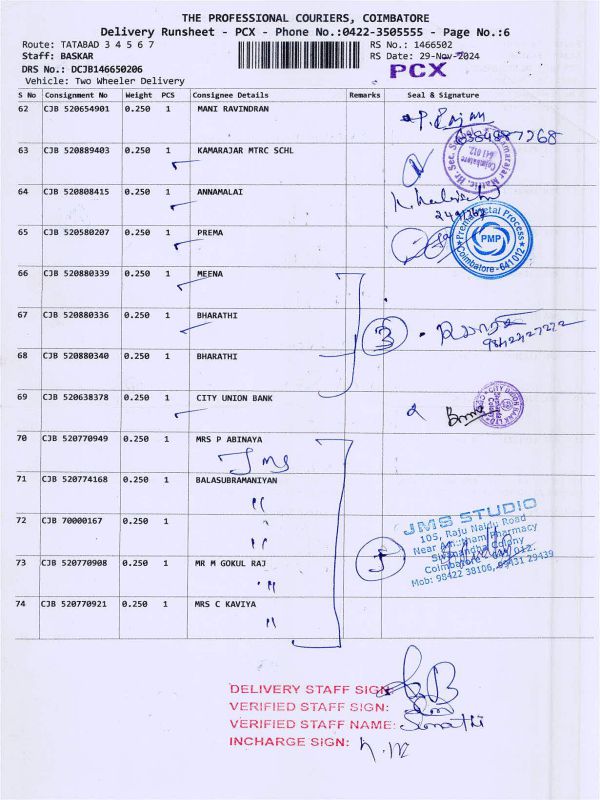 THE PROFESSIONAL COURIERS, COIMBATORE
Delivery Runsheet - PCX - Phone No.:0422-3505555 - Page No.:6
Route: TATABAD 3 4 5 6 7 RS No.: 1466502
Staff: BASKAR RS Date: 29-Nov-2024
DRS No.: DCJB146650206 PCX
Vehicle: Two Wheeler Delivery
S No Consignment No Weight PCS Consignee Details Remarks Seal & Signature
62 CJB 520654901 0.250 1 MANI RAVINDRAN P. Rajan
63 CJB 520889403 0.250 1 KAMARAJAR MTRC SCHL
64 CJB 520808415 0.250 1 ANNAMALAI
65 CJB 520580207 0.250 1 PREMA
Premier Metal Process
PMP
Coimbatore - 641 012
66 CJB 520880339 0.250 1 MEENA
67 CJB 520880336 0.250 1 BHARATHI 3
68 CJB 520880340 0.250 1 BHARATHI
69 CJB 520638378 0.250 1 CITY UNION BANK
70 CJB 520770949 0.250 1 MRS P ABINAYA
Jms
71 CJB 520774168 0.250 1 BALASUBRAMANIYAN
"
72 CJB 70000167 0.250 1
"
73 CJB 520770908 0.250 1 MR M GOKUL RAJ 5
"
74 CJB 520770921 0.250 1 MRS C KAVIYA
"
JMS STUDIO
105, Raju Naidu Road
Near Pharmacy
Sivanandha Colony
Coimbatore - 641 012.
Mob: 98422 38106, 99431 29439
DELIVERY STAFF SIGN:
VERIFIED STAFF SIGN:
VERIFIED STAFF NAME: Sumathi
INCHARGE SIGN: